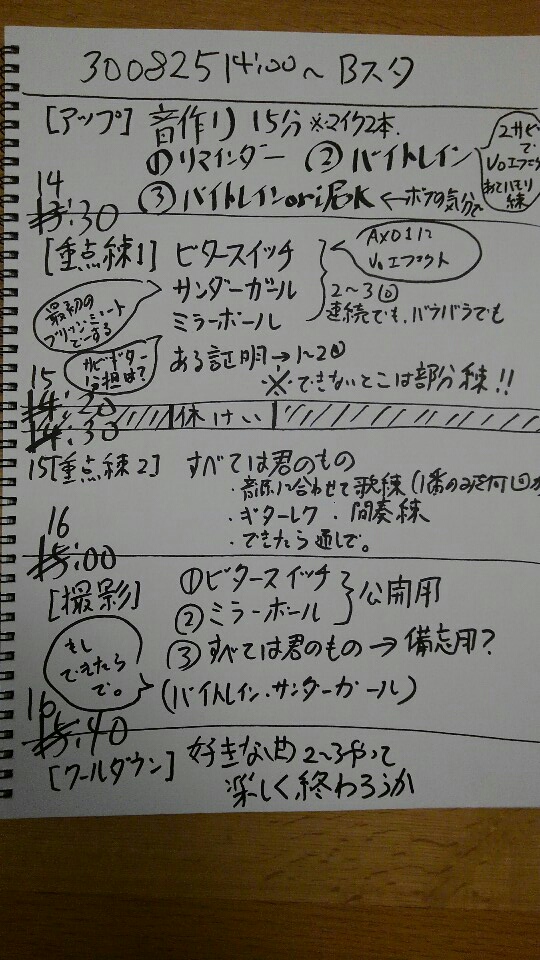 30082514:00～Bスタ
[アップ] 音作り 15分 ※マイク2本.
①リマインダー ②バイトレイン
2サビで Voエフェクト あと ハモリ練
③バイトレイン or 君 OK ←ボクの気分で
14
13:30
[重点練1] ビタースイッチ
サンダーガール
ミラーボール
AX01に Voエフェクト
2～3回
連続でも、バラバラでも
最初の ブリッジミュート で～する
サビギター 分担は?
ある証明→1～2回
※できないとこは部分練!!
15
14:20
休けい
14:30
15[重点練2] すべては君のもの
・音源に合わせて歌練(1番のみ
・ギターレク ・間奏練
・できたら通しで。
16
15:00
[撮影] ①ビタースイッチ
②ミラーボール
公開用
③すべては君のもの→備忘用?
もし できたら で。
(バイトレイン・サンダーガール)
16
15:40
[クールダウン] 好きな曲2～3やって
楽しく終わろうか